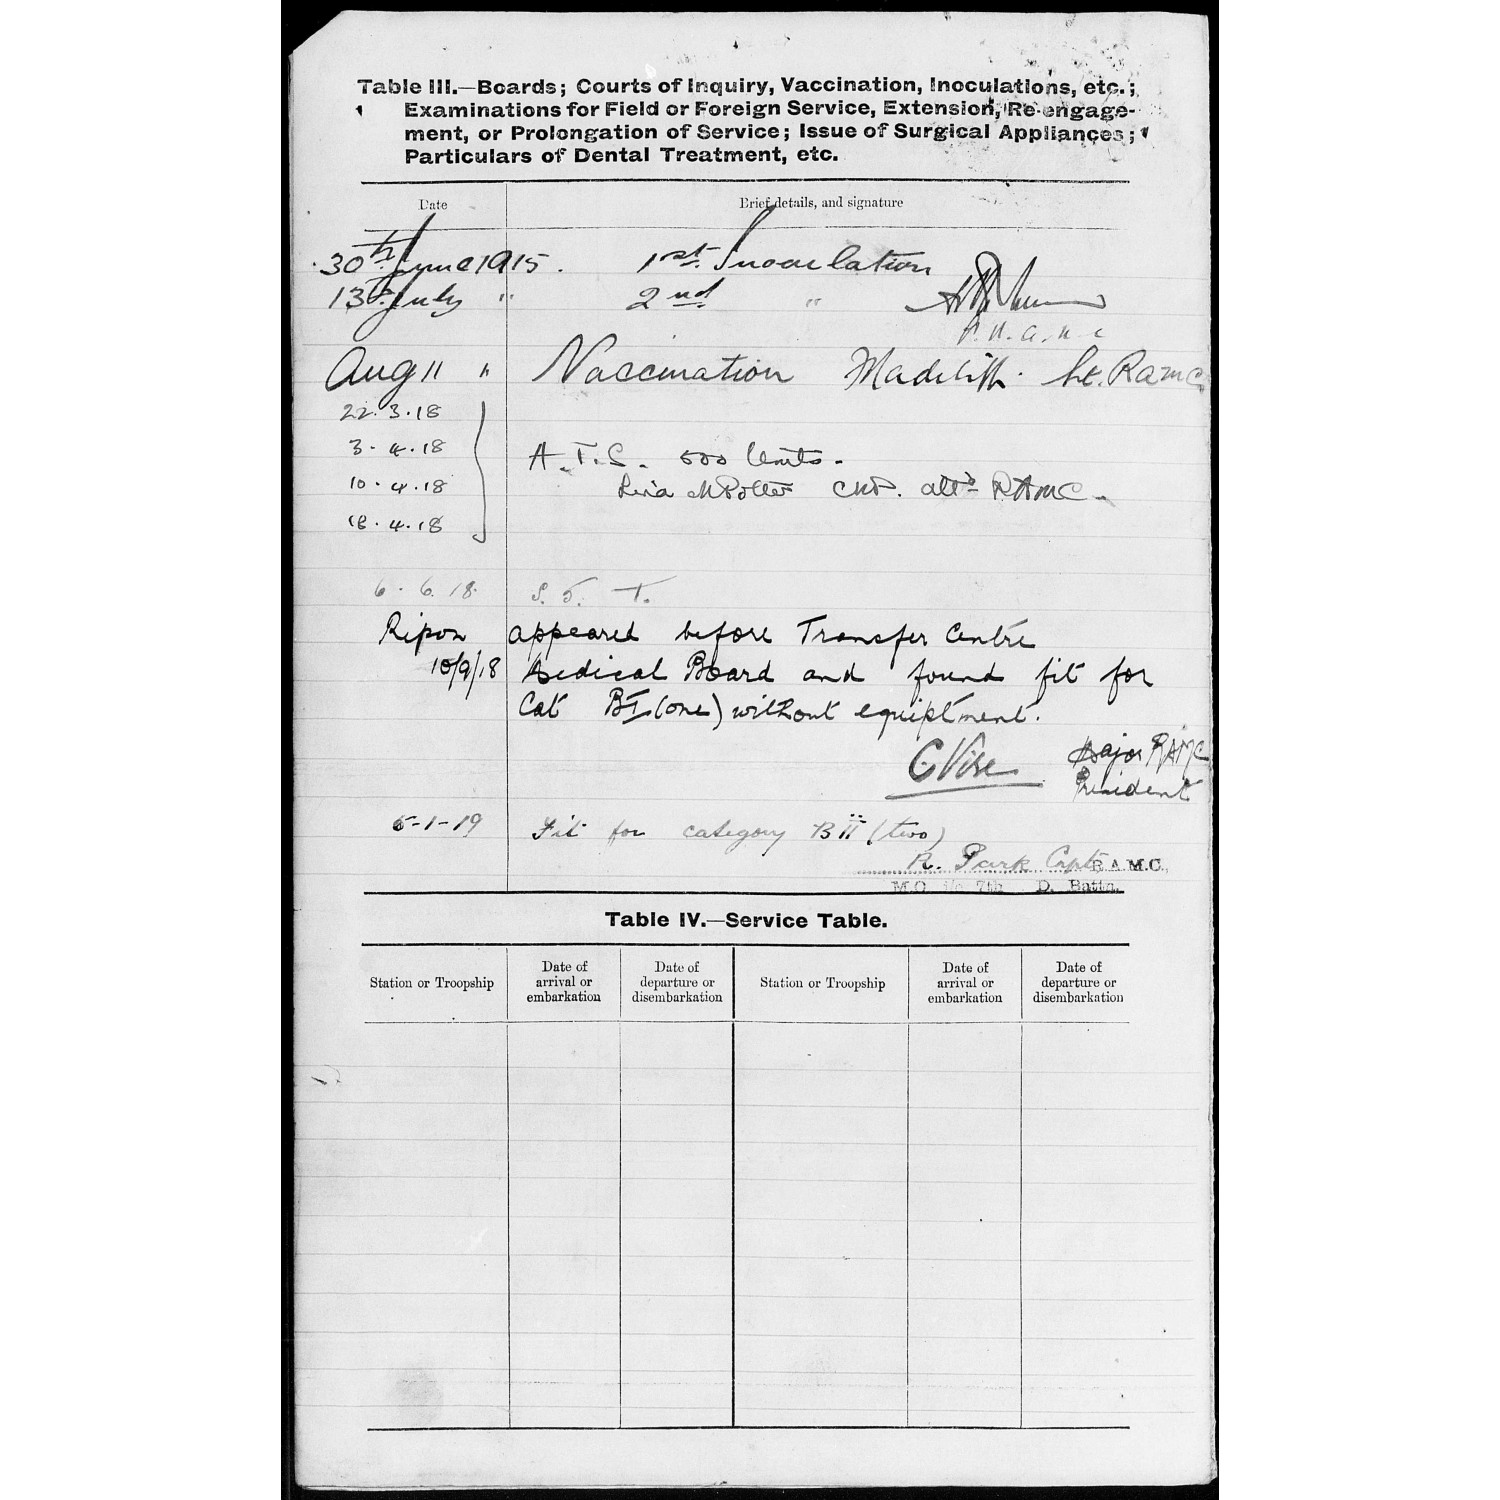 Table III.—Boards; Courts of Inquiry, Vaccination, Inoculations, etc.;
Examinations for Field or Foreign Service, Extension, Re-engage-
ment, or Prolongation of Service; Issue of Surgical Appliances;
Particulars of Dental Treatment, etc.
Date Brief details, and signature
30th June 1915. 1st Inoculation
13th July " 2nd "
Aug 11 " Vaccination Lt. RAMC
22.3.18
3.4.18
A.T.S. 500 Units.
10.4.18 Potter attd RAMC
18.4.18
6.6.18. T.
Ripon appeared before Transfer Centre
10/9/18 Medical Board and found fit for
Cat BI (one) without equiptment.
Major RAMC
President
5-1-19 Fit for category B II (two)
R. Park Capt R.A.M.C.
M.O. 7th D. Battn.
Table IV.—Service Table.
Station or Troopship Date of arrival or embarkation Date of departure or disembarkation Station or Troopship Date of arrival or embarkation Date of departure or disembarkation